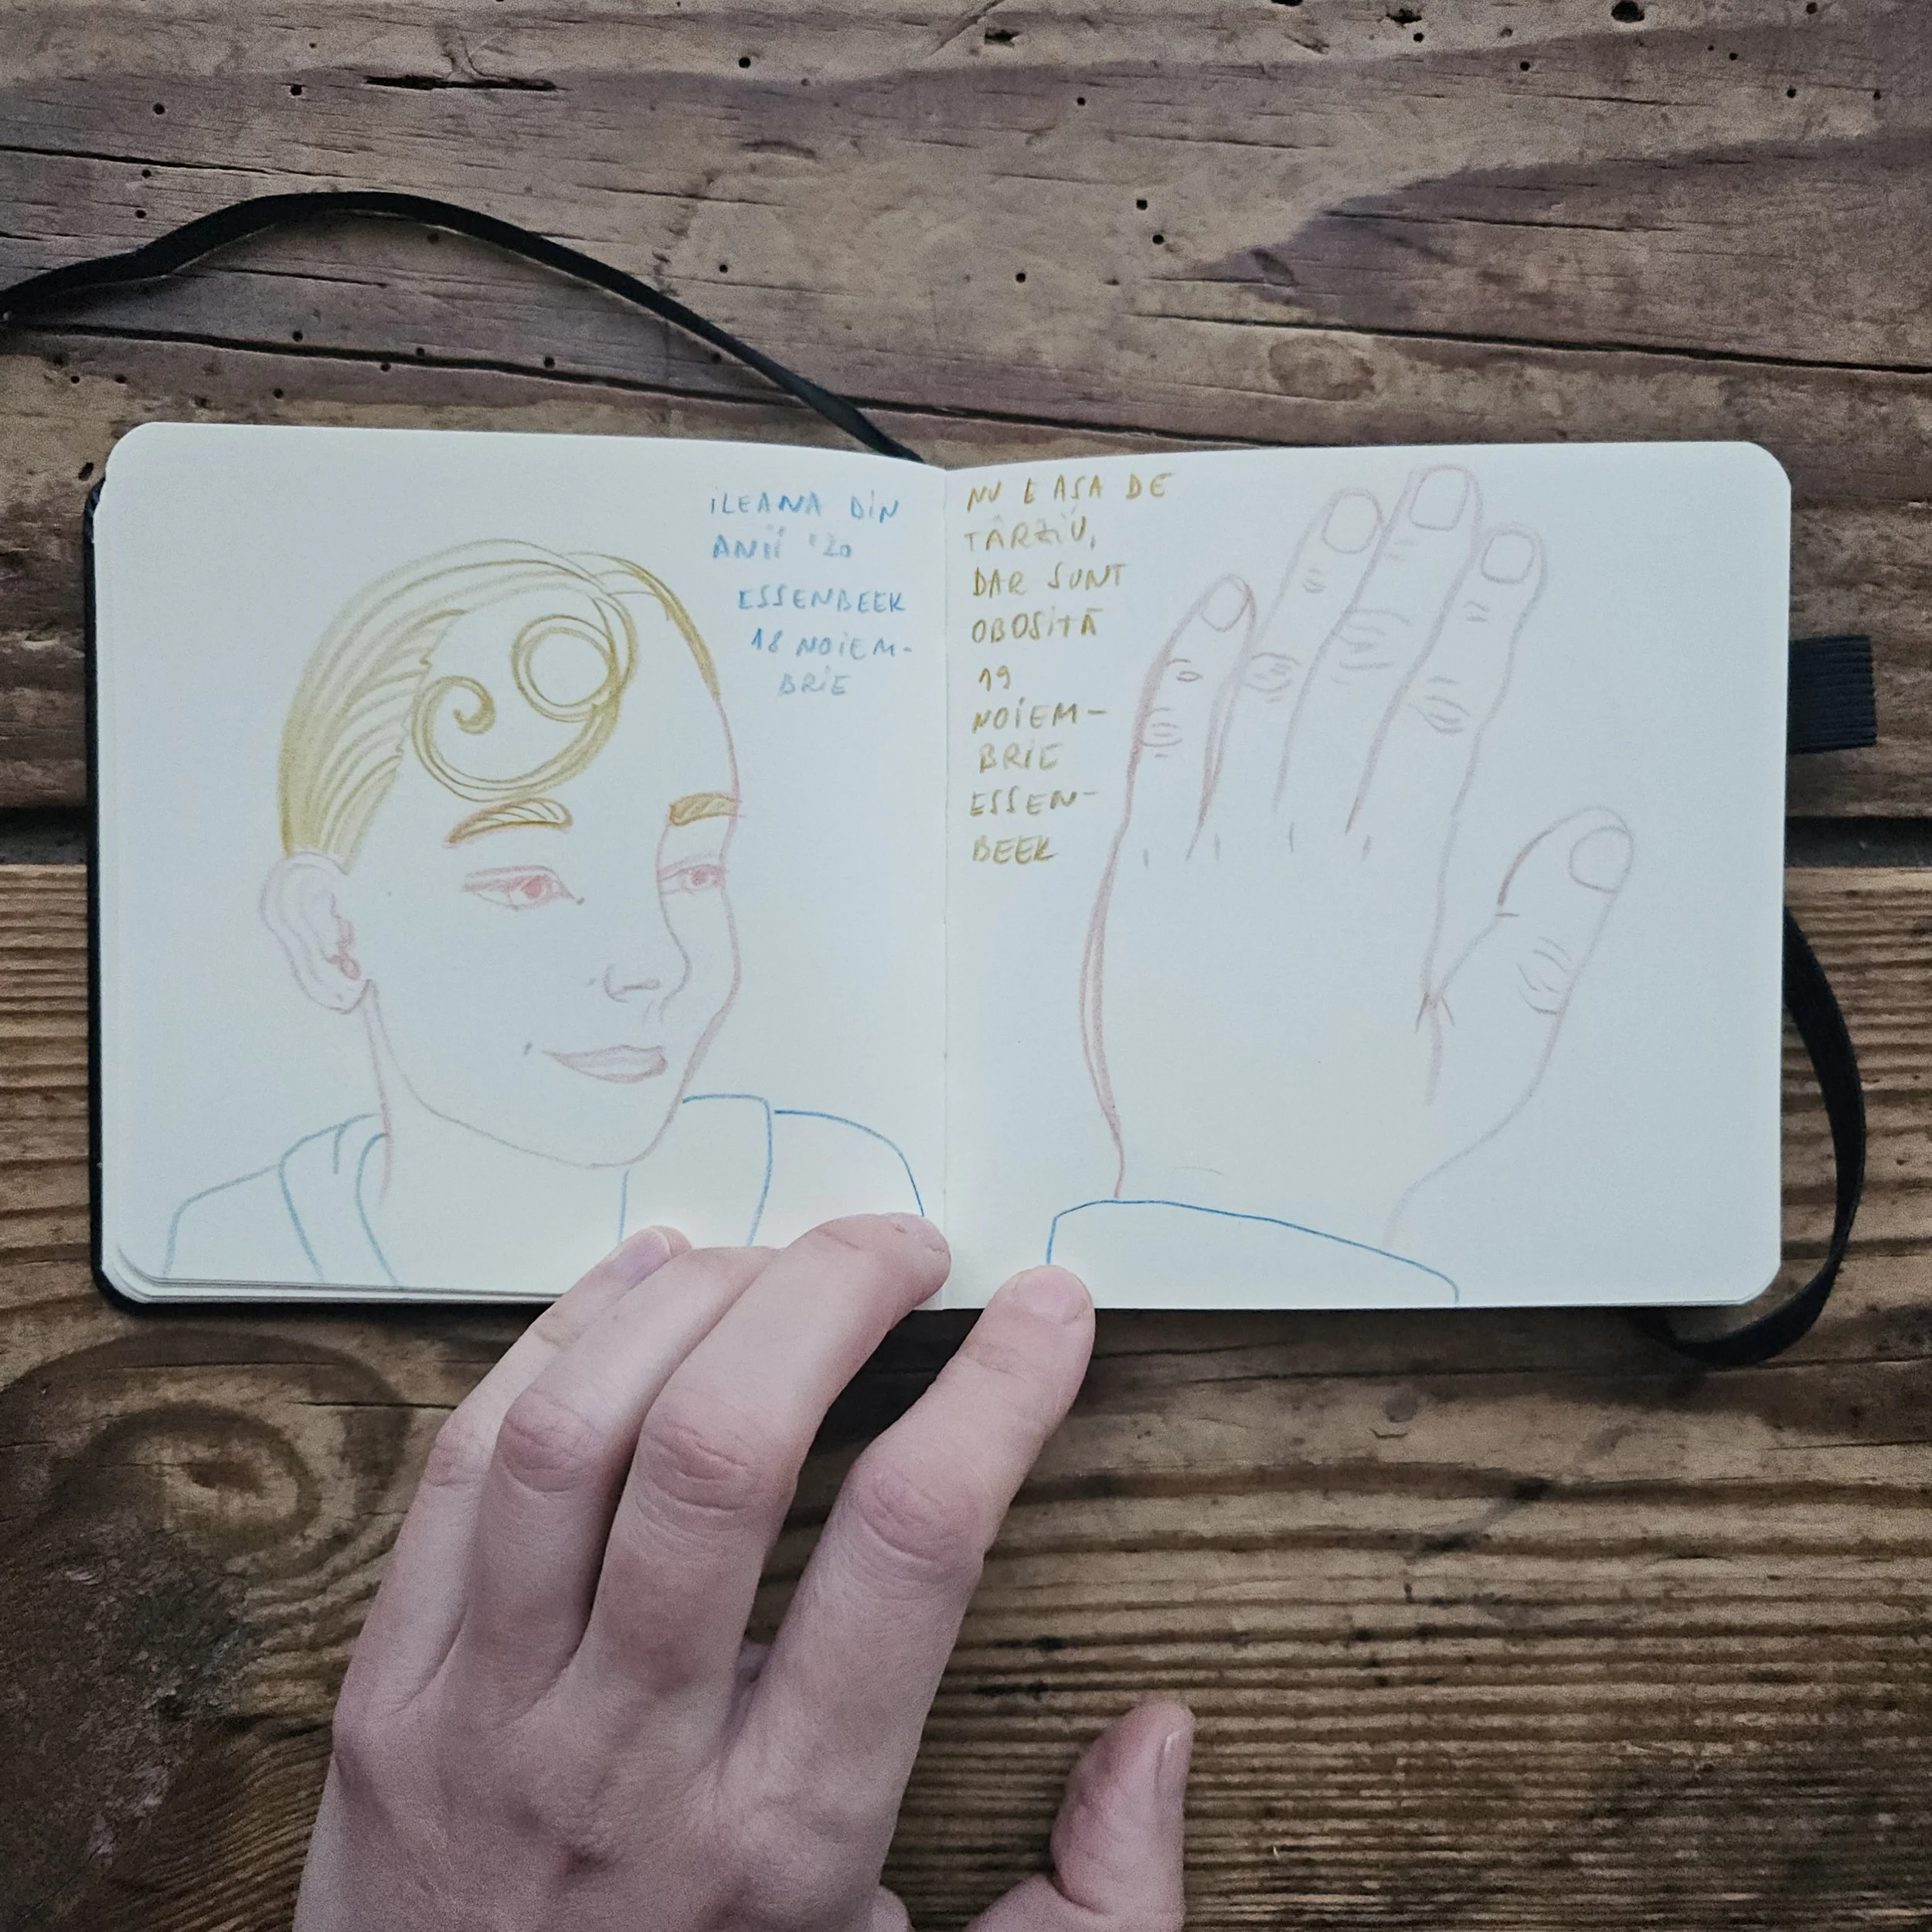 ILEANA DIN
ANII '20
ESSENBEEK
18 NOIEM-
BRIE
NU E AȘA DE
TÂRZIU,
DAR SUNT
OBOSITĂ
19
NOIEM-
BRIE
ESSEN-
BEEK